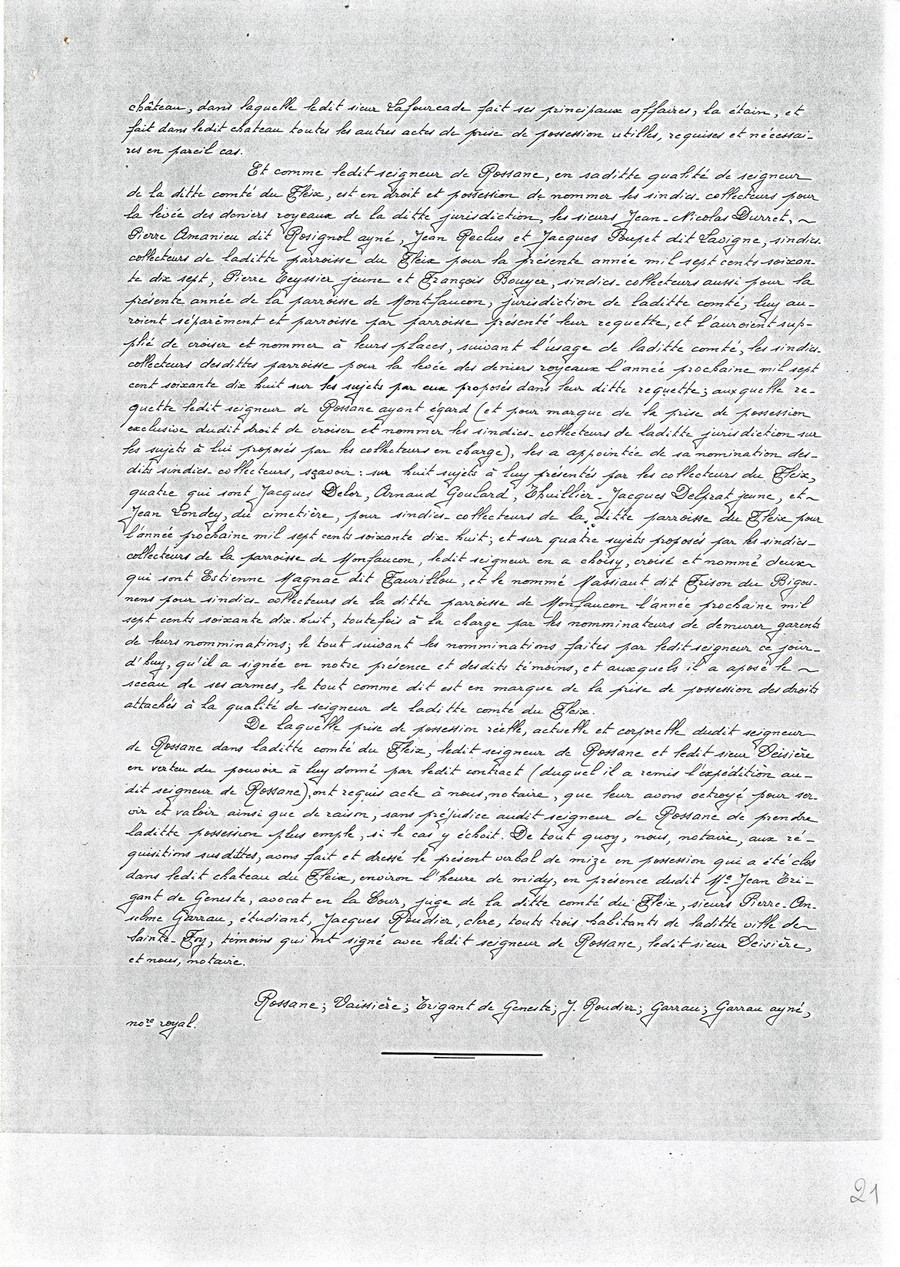 château, dans laquelle ledit sieur Lafourcade fait ses principaux affaires, la étain, et
fait dans ledit chateau toutes les autres actes de prise de possession utilles, requises et nécessai-
res en pareil cas.
Et comme ledit seigneur de Rossane, en saditte qualité de seigneur
de la ditte comté du Fleix, est en droit et possession de nommer les sindics-collecteurs pour
la levée des deniers royeaux de la ditte jurisdiction, les sieurs Jean-Nicolas Durret, ~
Pierre Amanieu dit Rosignol ayné, Jean Reclus et Jacques Poupet dit Lavigne, sindics-
collecteurs de laditte parroisse du Fleix pour la présente année mil sept cents soixan-
te dix sept, Pierre Teyssier jeune et François Bouyer, sindics-collecteurs aussi pour la
présente année de la parroisse de Montfaucon, jurisdiction de laditte comté, luy au-
roient séparèment et parroisse par parroisse présenté leur requette, et l'auroient sup-
plié de croiser et nommer à leurs places, suivant l'usage de laditte comté, les sindics-
collecteurs desdittes parroisse pour la levée des deniers royeaux l'année prochaine mil sept
cent soixante dix huit sur les sujets par eux proposés dans leur ditte requette; auxquelle re-
quette ledit seigneur de Rossane ayant égard (et pour marque de la prise de possession
exclusive dudit droit de croiser et nommer les sindics-collecteurs de laditte jurisdiction sur
les sujets à lui proposés par les collecteurs en charge), les a appointée de sa nomination des-
dits sindics-collecteurs, sçavoir: sur huit sujets à luy présentés par les collecteurs du Fleix,
quatre qui sont Jacques Delor, Arnaud Goulard, Thuillier-Jacques Delprat jeune, et ~
Jean Londey, du cimetière, pour sindics-collecteurs de la ditte parroisse du Fleix pour
l'année prochaine mil sept cents soixante dix huit; et sur quatre sujets proposés par les sindics-
collecteurs de la parroisse de Monfaucon, ledit seigneur en a choisy, croisé et nommé deux
qui sont Estienne Magnac dit Taurillou, et le nommé Massiaut dit Frison du Bigou-
nens pour sindics-collecteurs de la ditte parroisse de Monfaucon l'année prochaine mil
sept cents soixante dix-huit, toutefois à la charge par les nomminateurs de demurer garents
de leurs nomminations; le tout suivant les nomminations faites par ledit seigneur ce jour-
d'huy, qu'il a signée en notre présence et desdits témoins, et auxquels il a aposé le ~
sceau de ses armes, le tout comme dit est en marque de la prise de possession des droits
attachés à la qualité de seigneur de laditte comté du Fleix.
De laquelle prise de possession réelle, actuelle et corporelle dudit seigneur
de Rossane dans laditte comté du Fleix, ledit seigneur de Rossane et ledit sieur Veisière
en verteu du pouvoir à luy donné par ledit contract (duquel il a remis l'expédition au-
dit seigneur de Rossane), ont requis acte à nous, notaire, que leur avons octroyé pour ser-
vir et valoir ainsi que de raison, sans préjudice audit seigneur de Rossane de prendre
laditte possession plus emple, si le cas y échoit. De tout quoy, nous, notaire, aux ré-
quisitions susdittes, avons fait et dressé le présent verbal de mize en possession qui a été clos
dans ledit chateau du Fleix, environ l'heure de midy, en présence dudit Me Jean Tri-
gant de Geneste, avocat en la Cour, juge de la ditte comté du Fleix, sieurs Pierre-An-
selme Garrau, étudiant, Jacques Roudier, clerc, touts trois habitants de laditte ville de
Sainte-Foy, témoins qui ont signé avec ledit seigneur de Rossane, ledit sieur Veisière,
et nous, notaire.
Rossane; Vaissière; Trigant de Geneste; J. Roudier; Garrau; Garrau ayné,
nore royal.
21